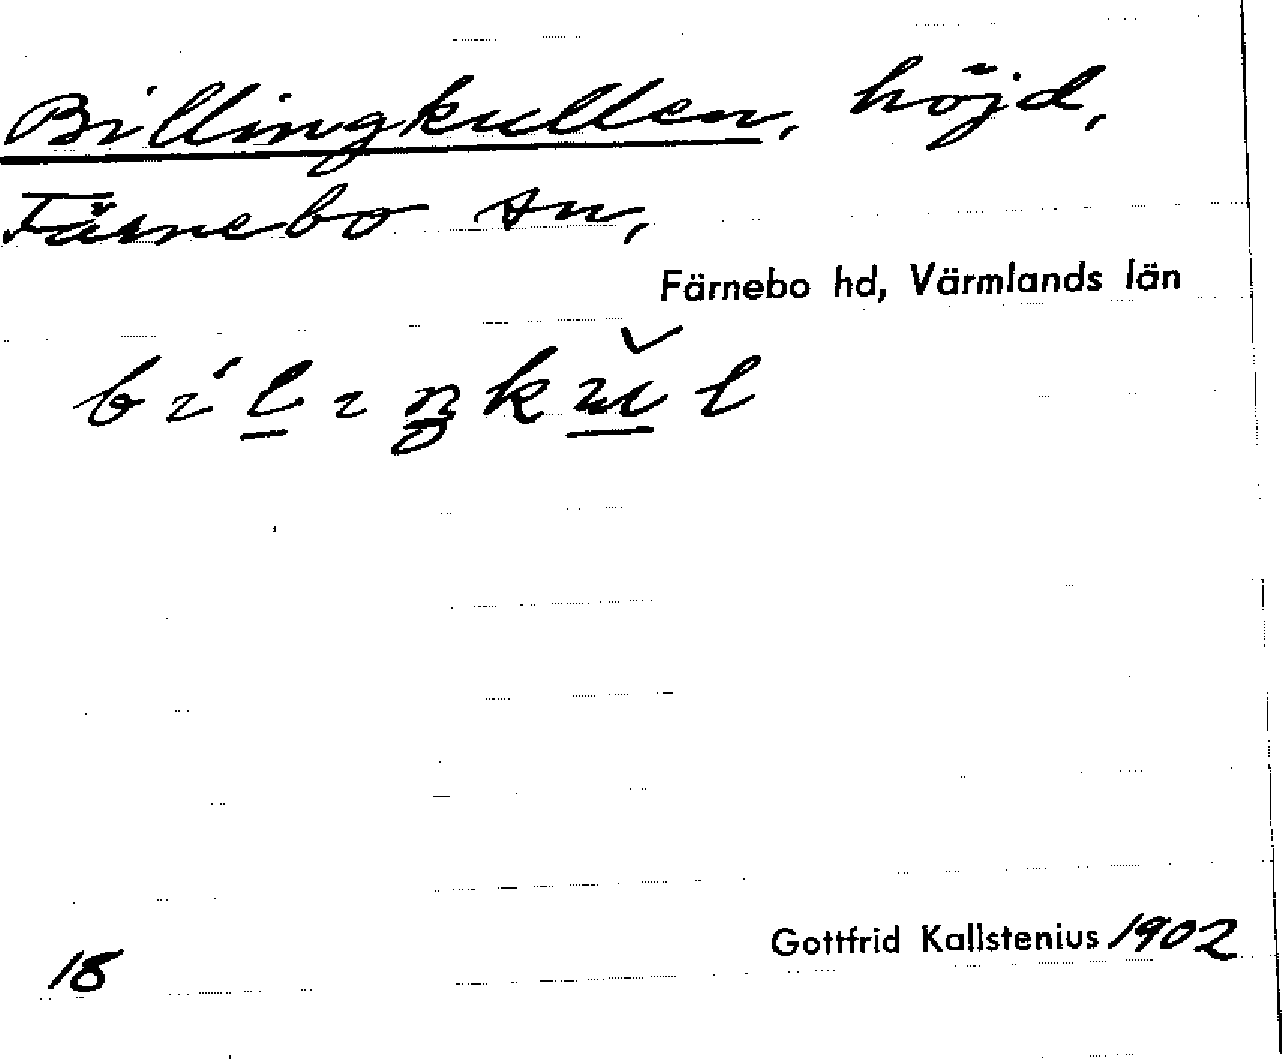 Billingkullen, höjd,
Färnebo sn,
Färnebo hd, Värmlands län
bílıŋkŭl
Gottfrid Kallstenius 1902
18